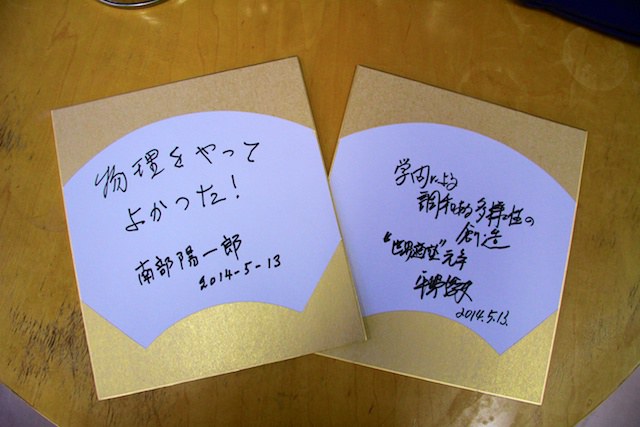 物理をやって
よかった!
南部陽一郎
2014-5-13
学問による
調和ある多様性の
創造
"世界適塾"元年
平野俊夫
2014.5.13.